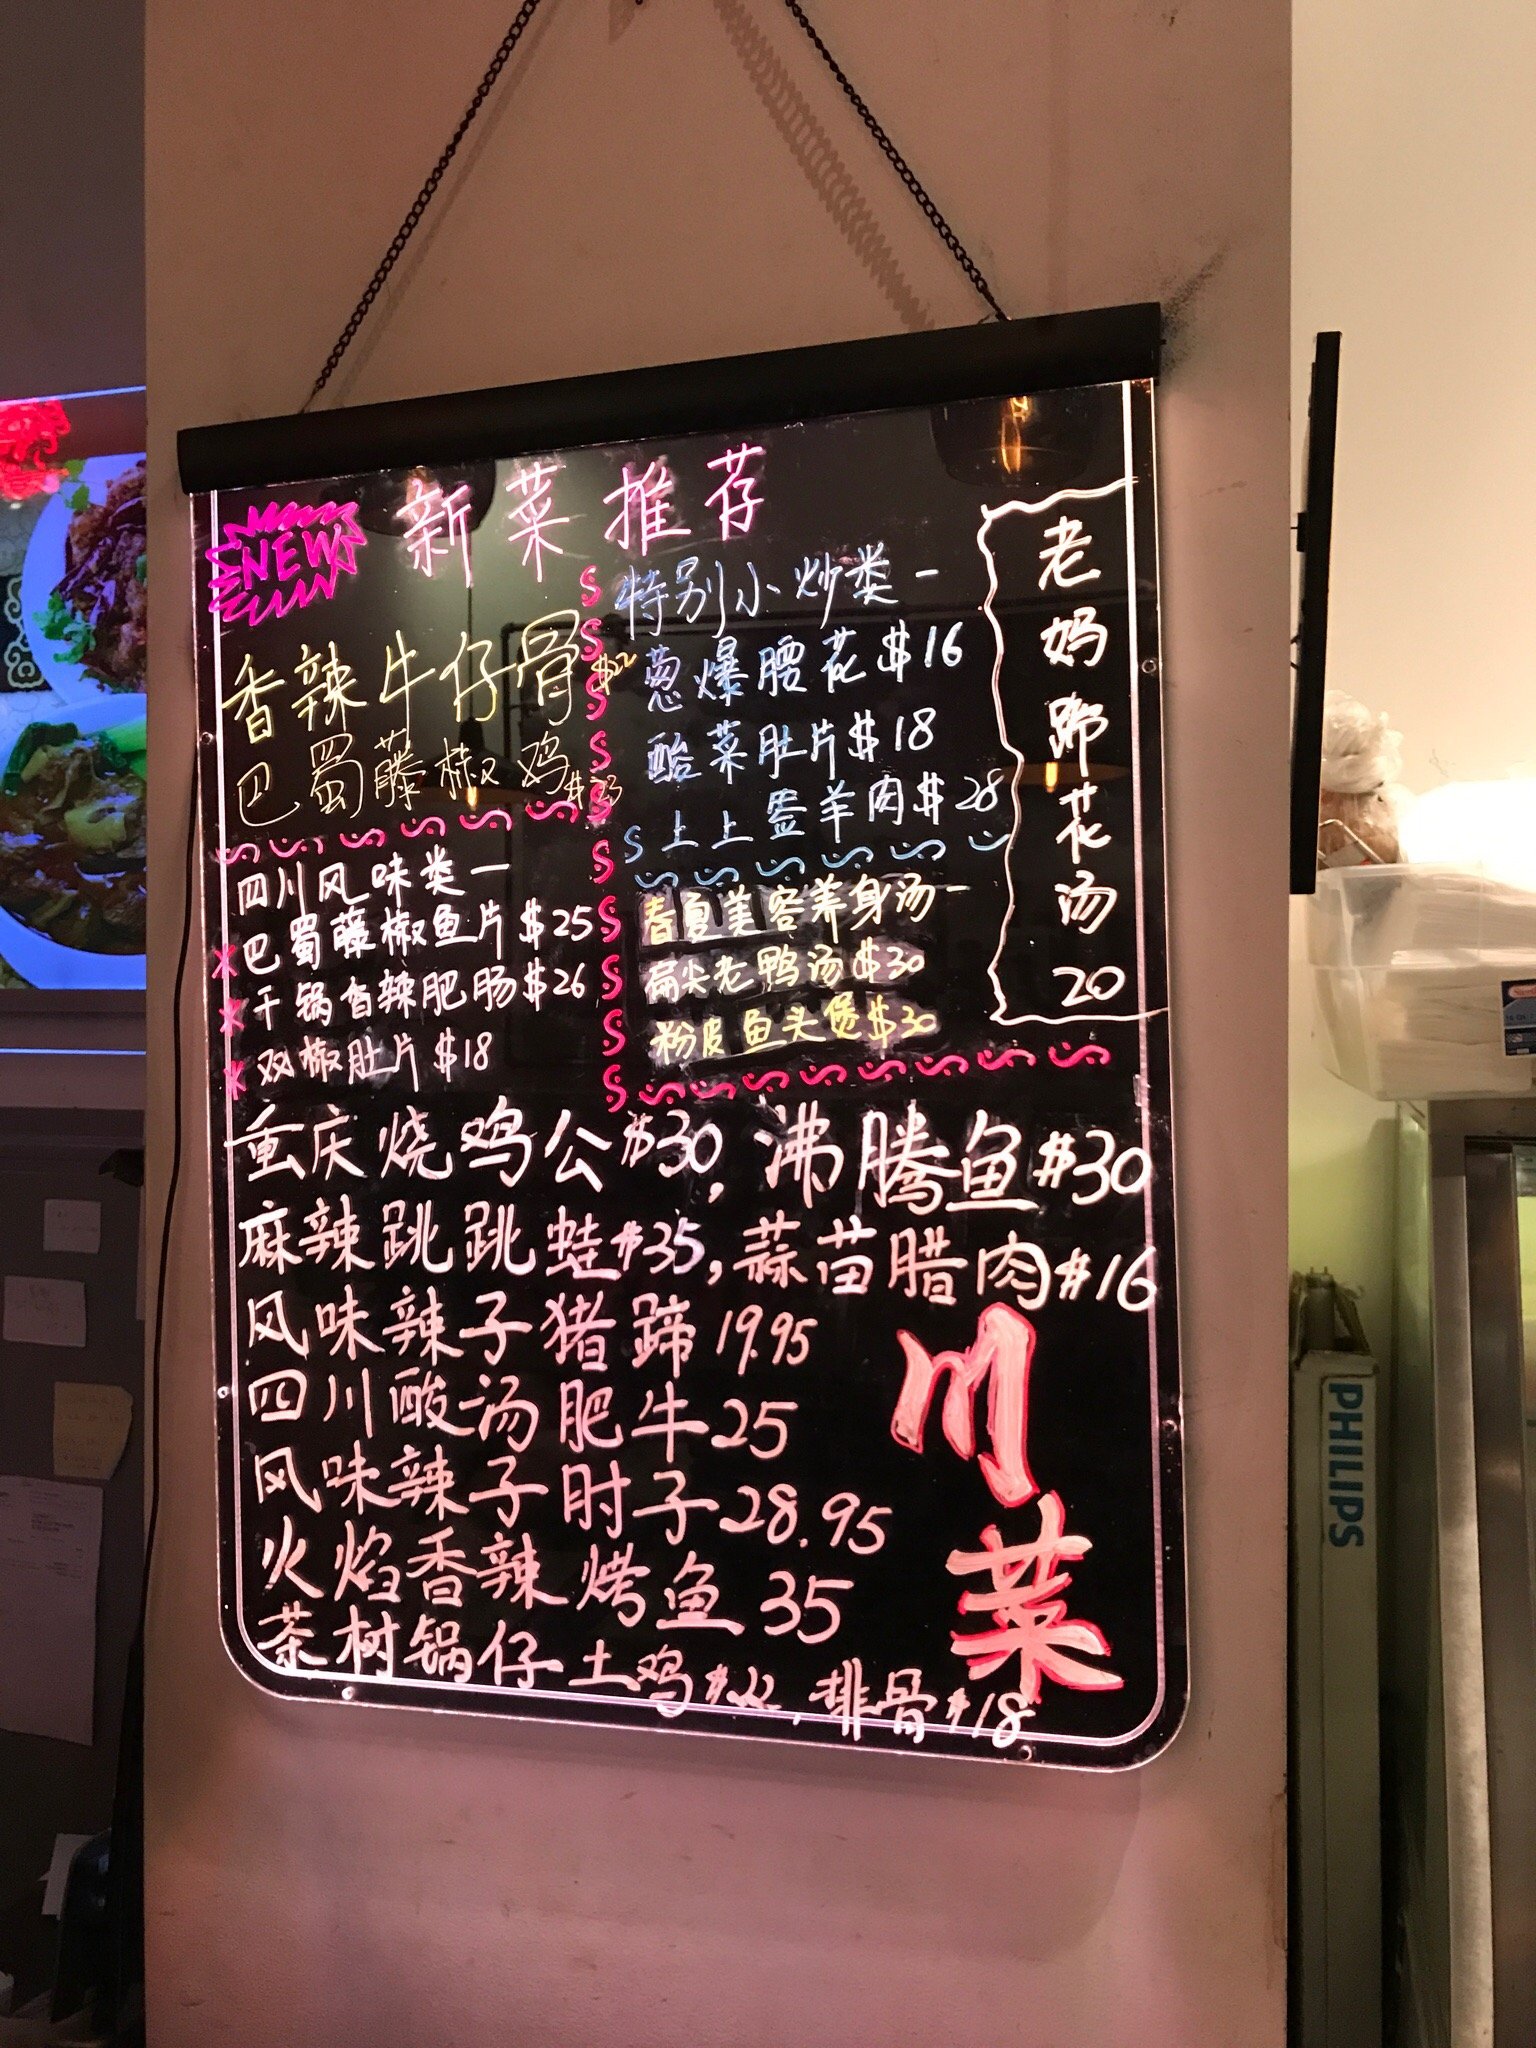 NEW 新菜推荐
香辣牛仔骨 $22
巴蜀藤椒鸡 $23
四川风味类一
巴蜀藤椒鱼片 $25
干锅香辣肥肠 $26
双椒肚片 $18
特别小炒类一
葱爆腰花 $16
酸菜肚片 $18
上上签羊肉 $28
春夏美容养身汤一
扁尖老鸭汤 $30
粉皮鱼头煲 $30
老妈蹄花汤 20
重庆烧鸡公 $30, 沸腾鱼 $30
麻辣跳跳蛙 $35, 蒜苗腊肉 $16
风味辣子猪蹄 19.95
四川酸汤肥牛 25
风味辣子肘子 28.95
火焰香辣烤鱼 35
茶树锅仔土鸡 $22, 排骨 $18
川菜
PHILIPS